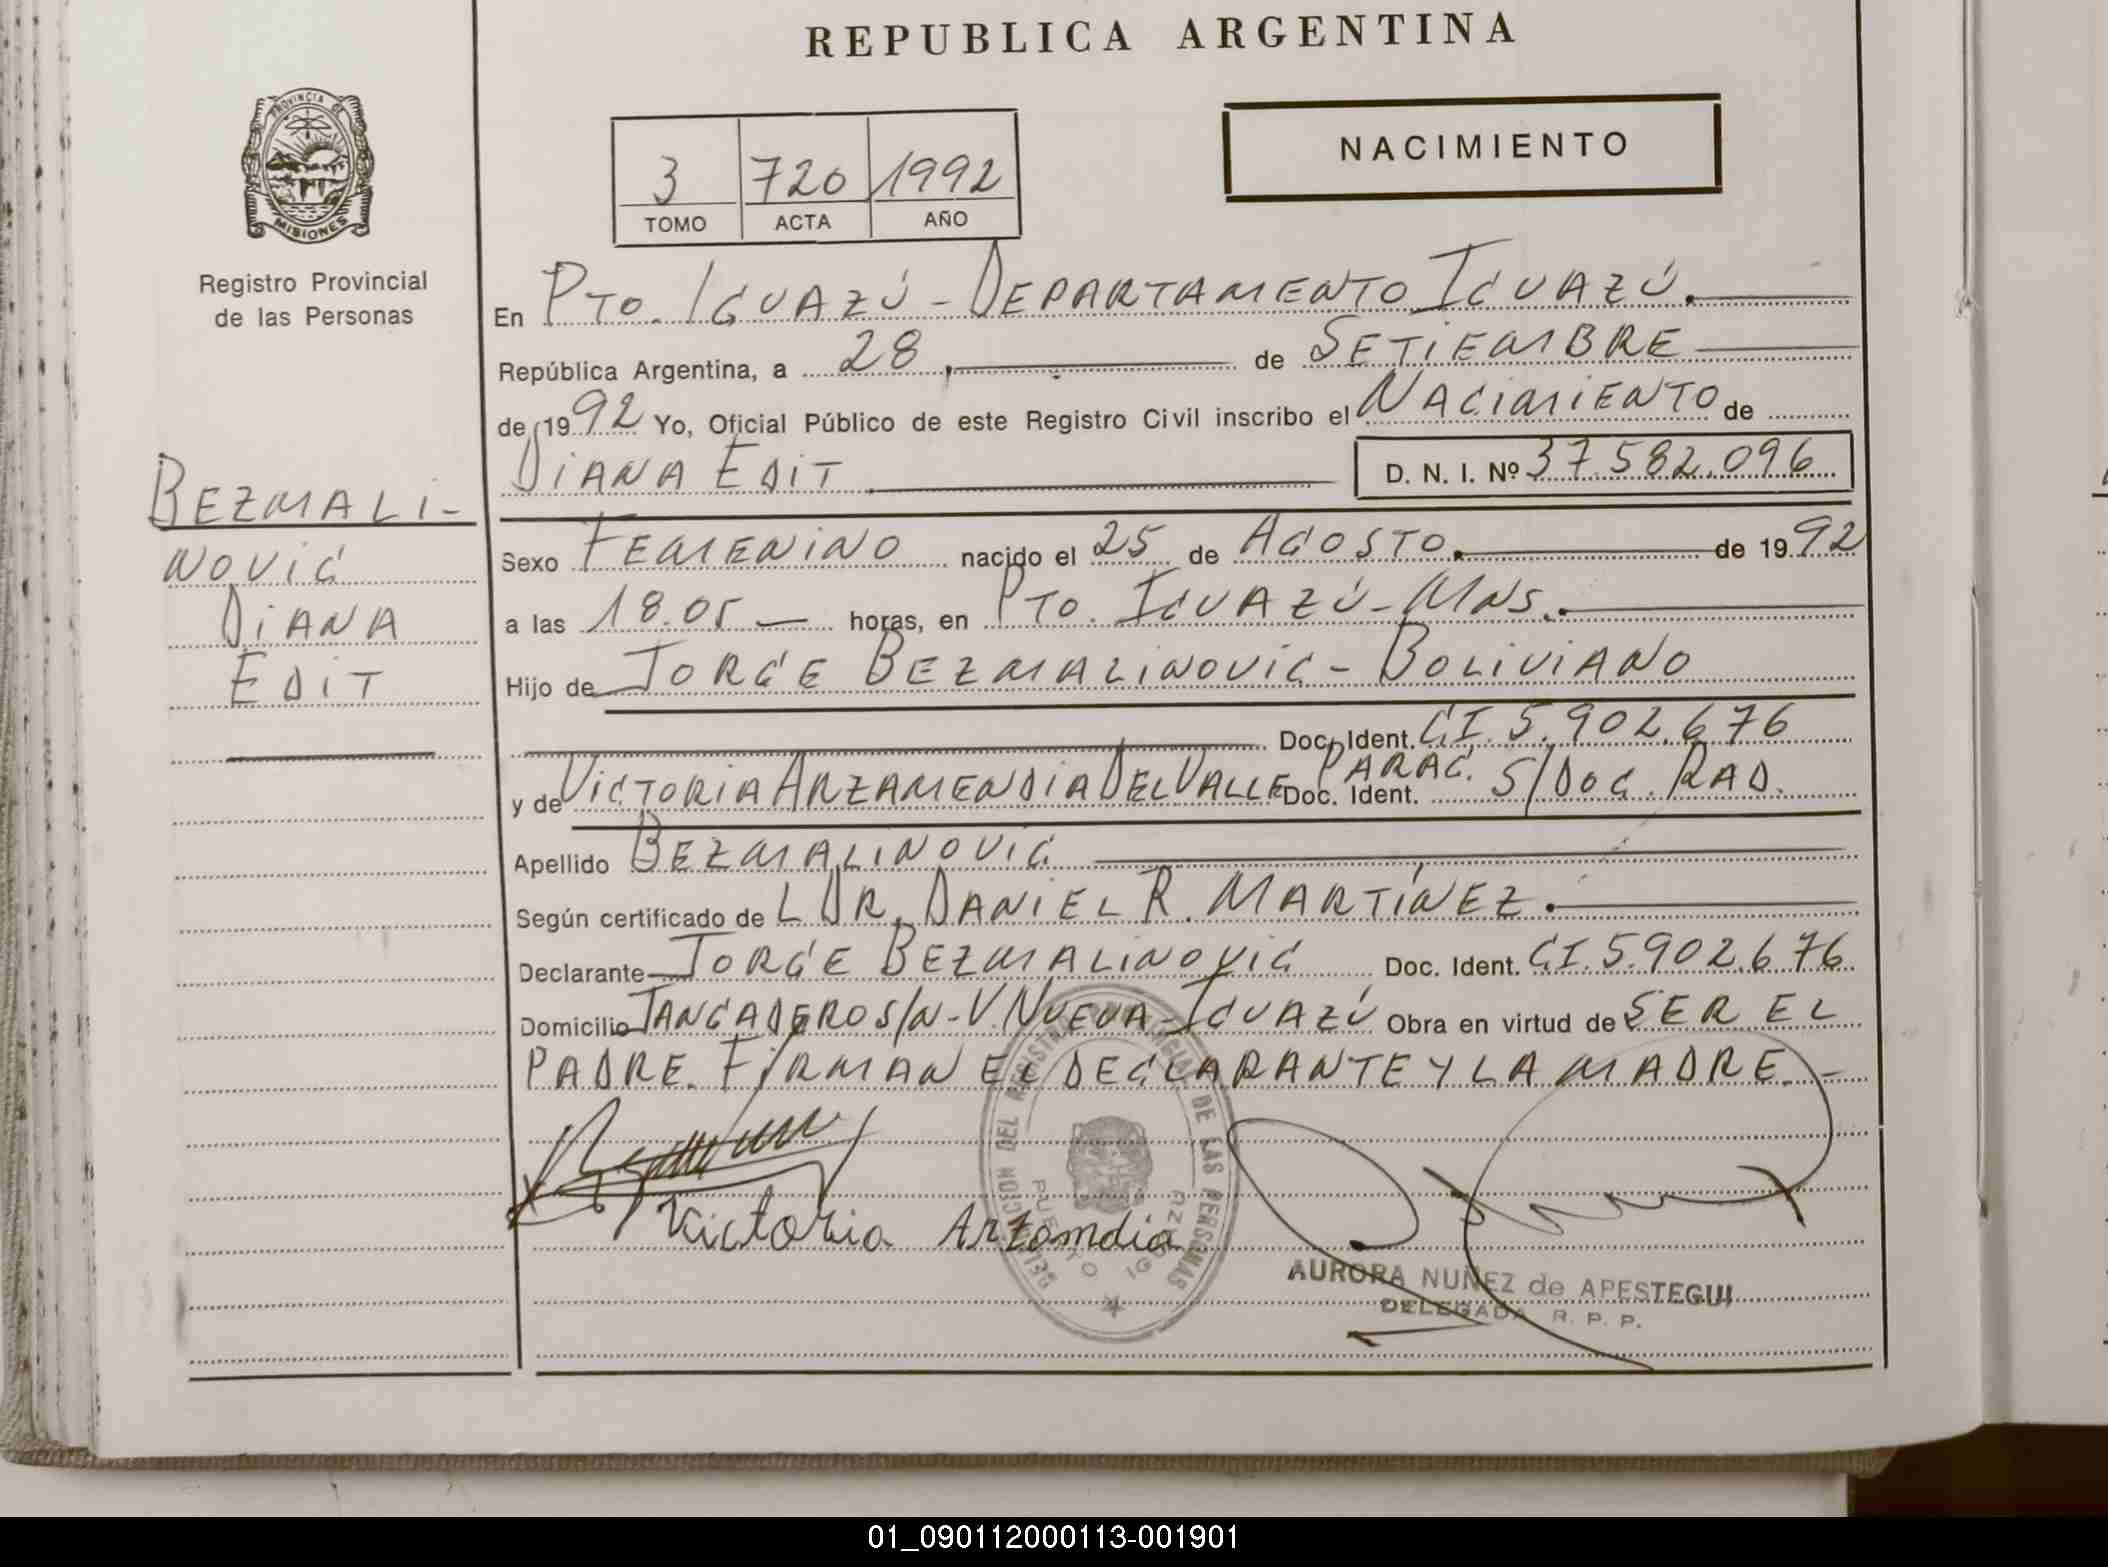 REPUBLICA ARGENTINA
PROVINCIA DE
MISIONES
Registro Provincial
de las Personas
3 720 1992
TOMO ACTA AÑO
NACIMIENTO
En PTO. IGUAZÚ - DEPARTAMENTO IGUAZÚ.
República Argentina, a 28 de SETIEMBRE
de 1992 Yo, Oficial Público de este Registro Civil inscribo el NACIMIENTO de
DIANA EDIT D. N. I. Nº 37.582.096
BEZMALI-
NOVIC
DIANA
EDIT
Sexo FEMENINO nacido el 25 de AGOSTO. de 1992
a las 18.05 — horas, en PTO. IGUAZÚ - MNS.
Hijo de JORGE BEZMALINOVIC - BOLIVIANO
Doc. Ident. CI. 5.902.676
y de VICTORIA ARZAMENDIA DEL VALLE PARAG. Doc. Ident. S/DOC. RAD.
Apellido BEZMALINOVIC
Según certificado de L DR. DANIEL R. MARTÍNEZ.
Declarante JORGE BEZMALINOVIC Doc. Ident. CI. 5.902.676
Domicilio TANGADERO S/N - V. NUEVA - IGUAZÚ Obra en virtud de SER EL
PADRE. FIRMAN EL DECLARANTE Y LA MADRE. -
Victoria Arzamdia
DIRECCION DEL REGISTRO PROVINCIAL DE LAS PERSONAS
PUERTO IGUAZU
AURORA NUÑEZ de APESTEGUI
DELEGADA R. P. P.
01_090112000113-001901